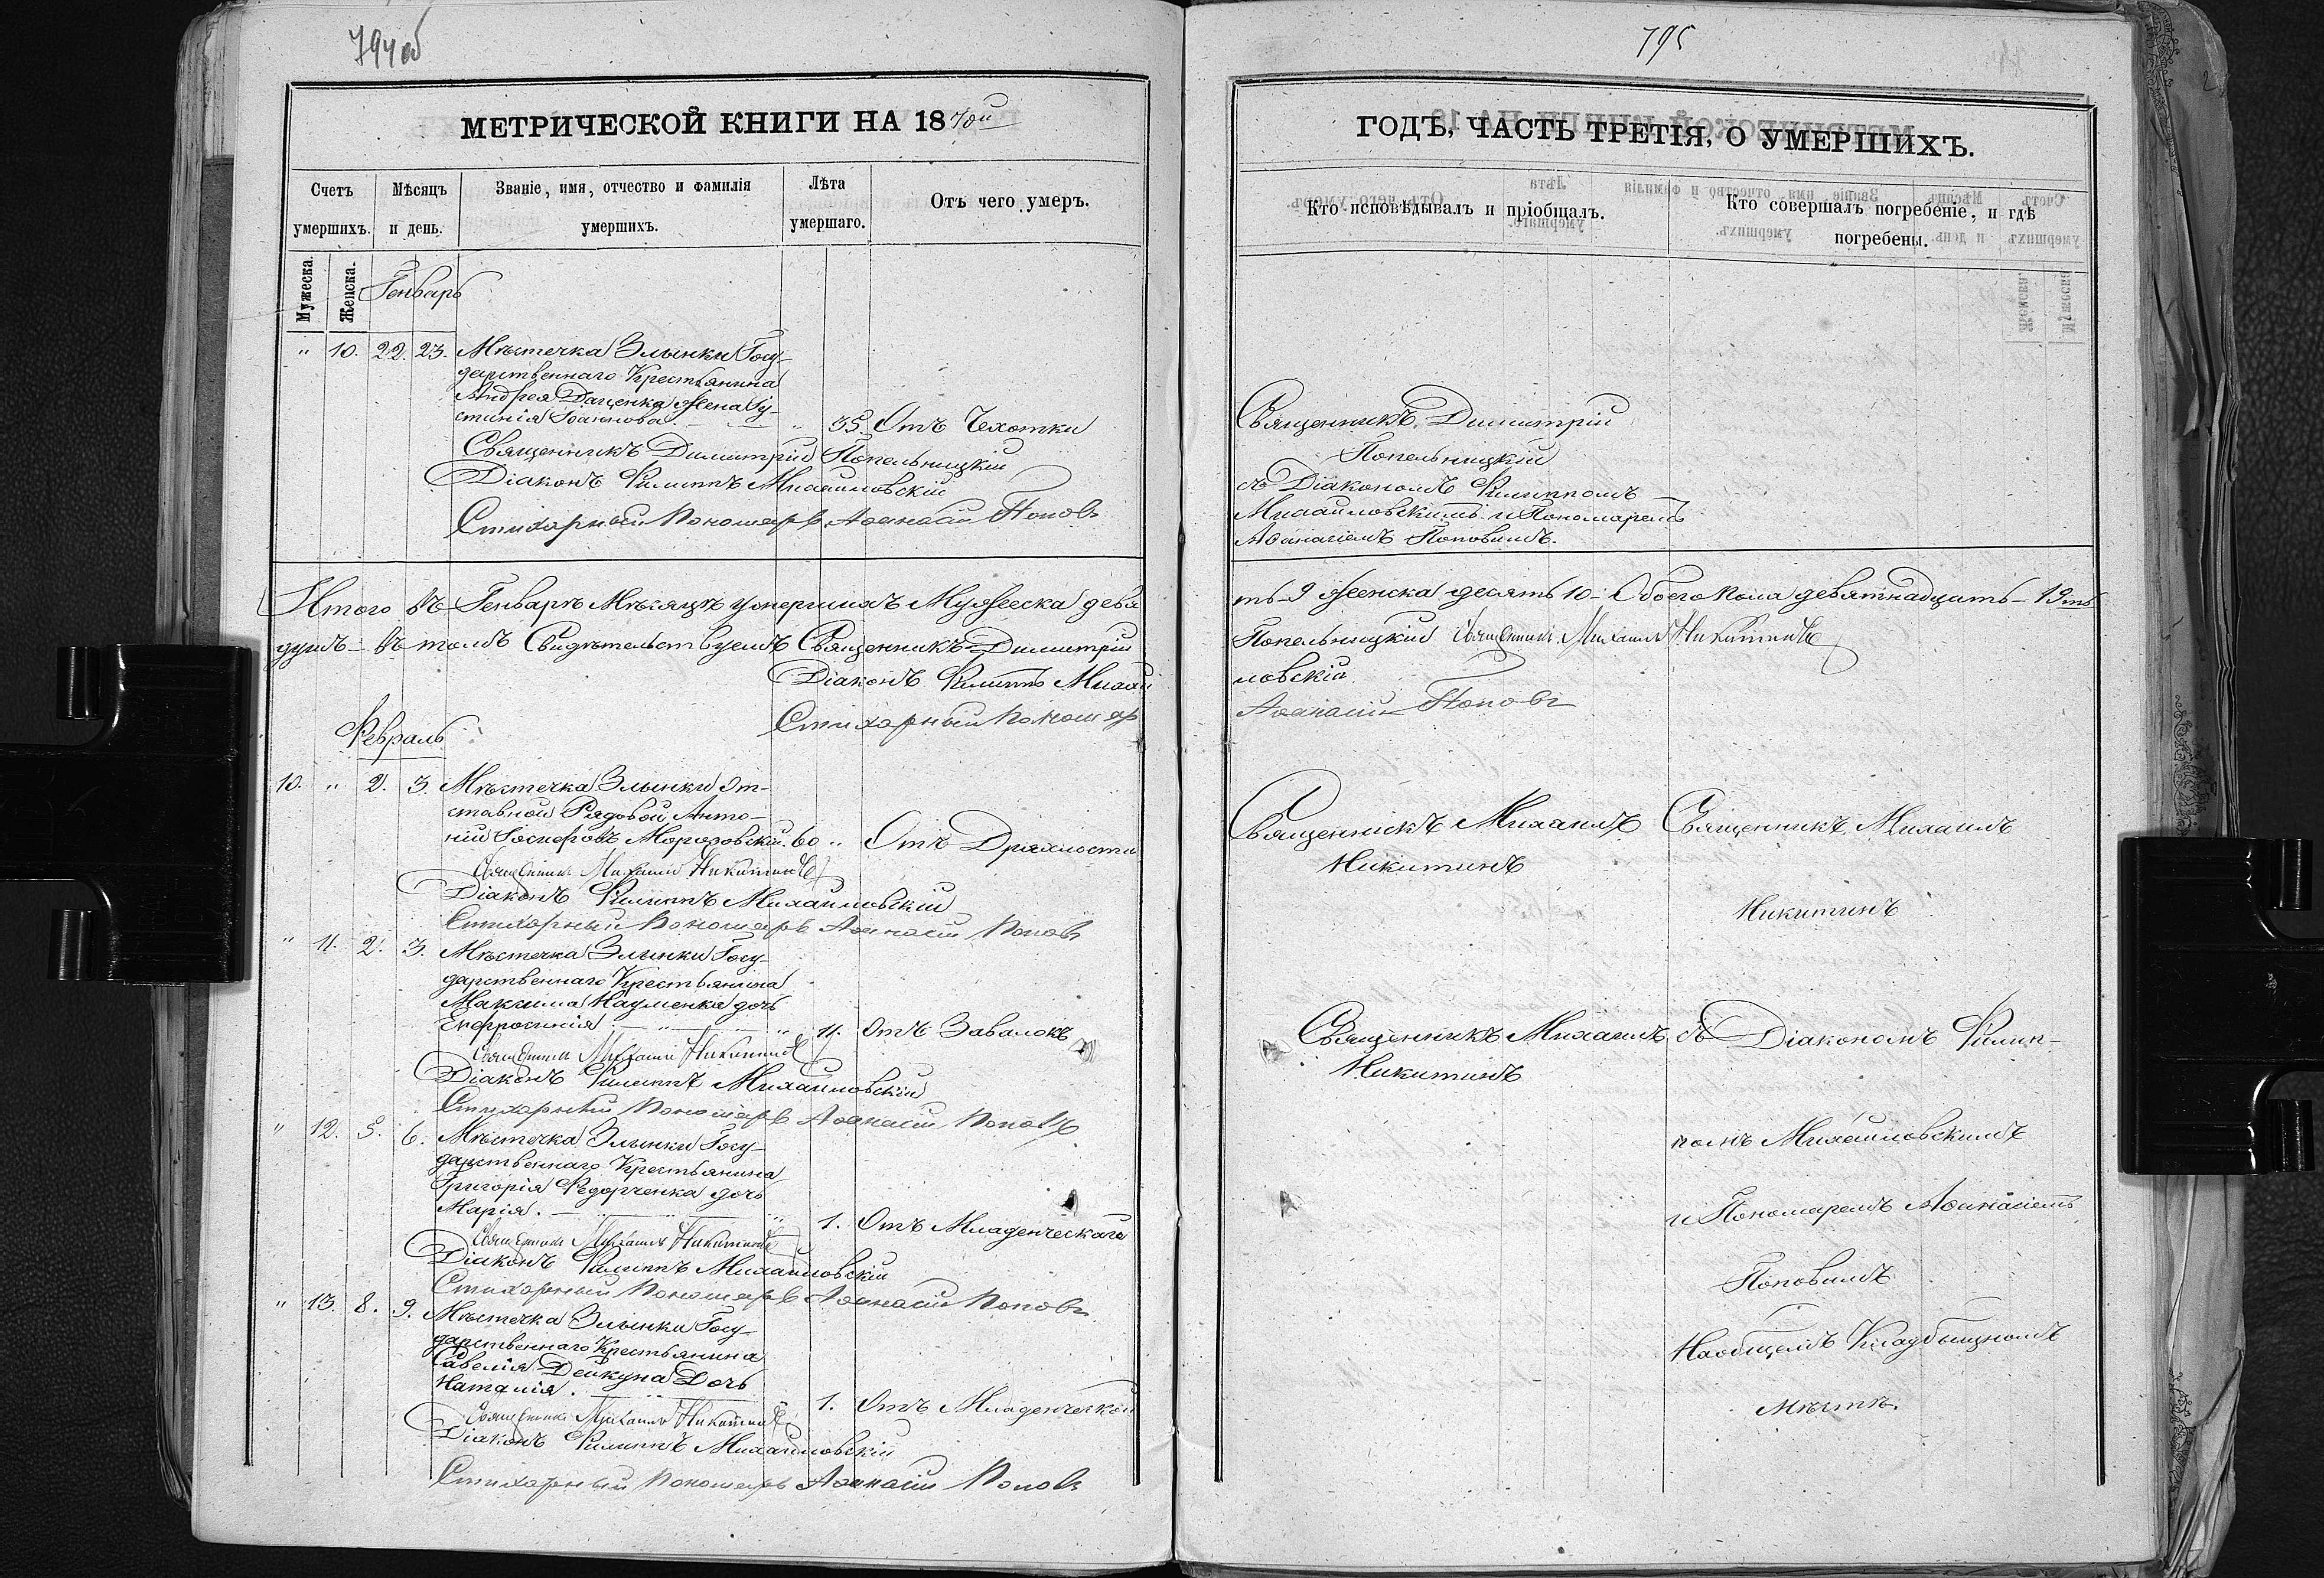 794об
МЕТРИЧЕСКОЙ КНИГИ НА 1870ий
Счетъ умершихъ.
Мѣсяцъ и день.
Званіе, имя, отчество и фамилія умершихъ.
Лѣта умершаго.
Отъ чего умеръ.
Мужеска.
Женска.
Генварь
" 10. 22. 23. Мѣстечка Злынки Госу-
дарственнаго Крестьянина
Андрея Даценка жена Іу-
стинія Іоаннова. " 35. Отъ Чехотки
Священникъ Димитрій Попельницкій
Діаконъ Филиппъ Михаиловскій
Стихарный Пономарь Афанасій Поповъ
Итого въ Генварѣ Мѣсяцѣ умершихъ Мужеска девя
душъ – въ томъ Свидѣтельствуемъ Священникъ Димитрій
Діаконъ Филиппъ Михаи
Стихарный Пономар
Февраль
10. " 2. 3. Мѣстечка Злынки От-
ставной Рядовой Анто-
ній Іосифовъ Морозовскій. 60 " Отъ Дряхлости
Священникъ Михаилъ Никитинъ
Діаконъ Филиппъ Михаиловскій
Стихарный Пономарь Афанасій Поповъ
" 11. 2. 3. Мѣстечка Злынки Госу-
дарственнаго Крестьянина
Максима Науменка дочь
Евфросинія " 11. Отъ Завалокъ
Священникъ Михаилъ Никитинъ
Діаконъ Филиппъ Михаиловскій
Стихарный Пономарь Афанасій Поповъ
" 12. 5. 6. Мѣстечка Злынки Госу-
дарственнаго Крестьянина
Григорія Федорченка дочь
Марія. " 1. Отъ Младенческаго
Священникъ Михаилъ Никитинъ
Діаконъ Филиппъ Михаиловскій
Стихарный Пономарь Афанасій Поповъ
" 13. 8. 9. Мѣстечка Злынки Госу-
дарственнаго Крестьянина
Савелія Дейкуна Дочь
Наталія. " 1. Отъ Младенческой
Священникъ Михаилъ Никитинъ
Діаконъ Филиппъ Михаиловскій
Стихарный Пономарь Афанасій Поповъ
795
ГОДЪ, ЧАСТЬ ТРЕТІЯ, О УМЕРШИХЪ.
Кто исповѣдывалъ и пріобщалъ.
Кто совершалъ погребеніе, и гдѣ
погребены.
Священникъ Димитрій
Попельницкій
съ Діакономъ Филиппомъ
Михаиловскимъ и Пономаремъ
Афанасіемъ Поповымъ.
ть – 9 женска десять 10 – Обоего пола девятнадцать – 19ть
Попельницкій Священникъ Михаилъ Никитинъ
ловскій
Афанасій Поповъ
Священникъ Михаилъ Священникъ Михаилъ
Никитинъ
Никитинъ
Священникъ Михаилъ съ Діакономъ Филип-
Никитинъ
помъ Михаиловскимъ
и Пономаремъ Афанасіемъ
Поповымъ
На общемъ Кладбищномъ
мѣстѣ.